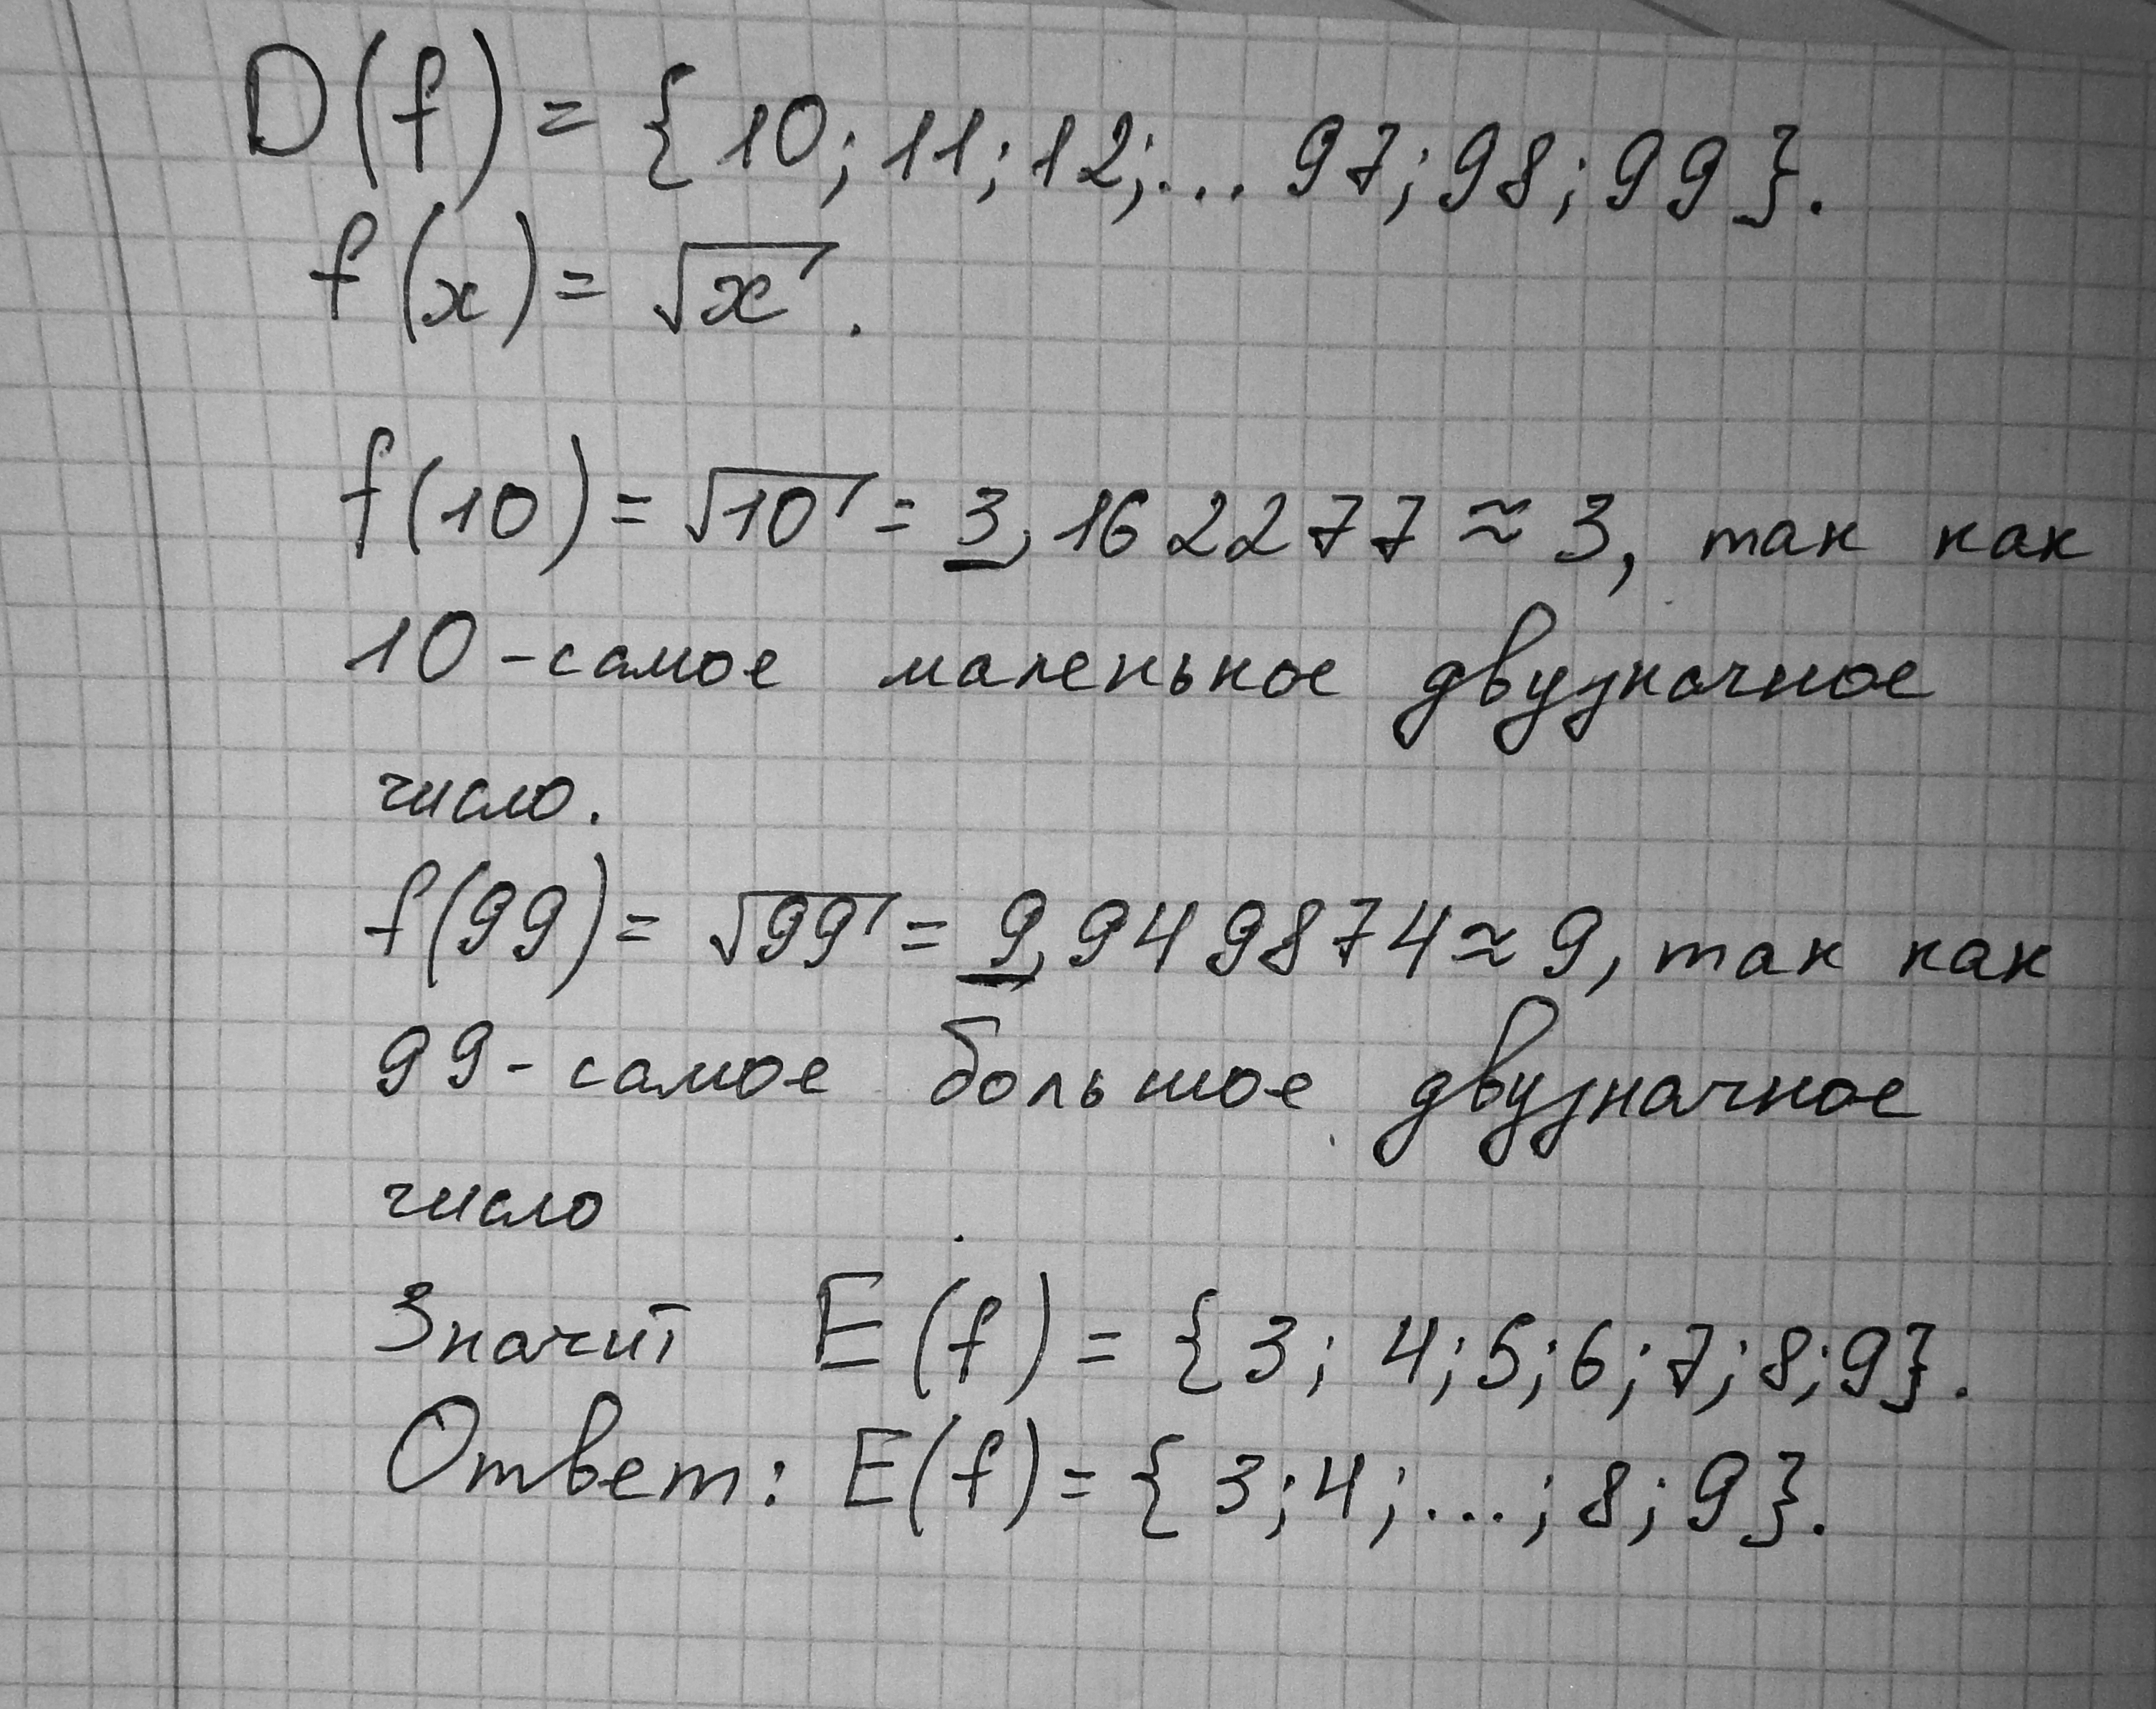 D(f) = { 10; 11; 12; ... 97; 98; 99 }.
f(x) = √x.
f(10) = √10 = 3,1622277 ≈ 3, так как
10 - самое маленькое двузначное
число.
f(99) = √99 = 9,949874 ≈ 9, так как
99 - самое большое двузначное
число
Значит E(f) = {3; 4; 5; 6; 7; 8; 9}.
Ответ: E(f) = {3; 4; ...; 8; 9}.